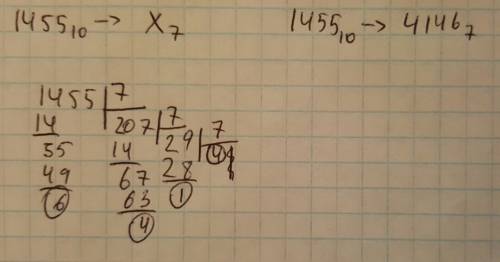 1455₁₀ → X₇
1455₁₀ → 4146₇
1455 7
14 207 7
55 14 29 7
49 67 28 4
6 63 1
4